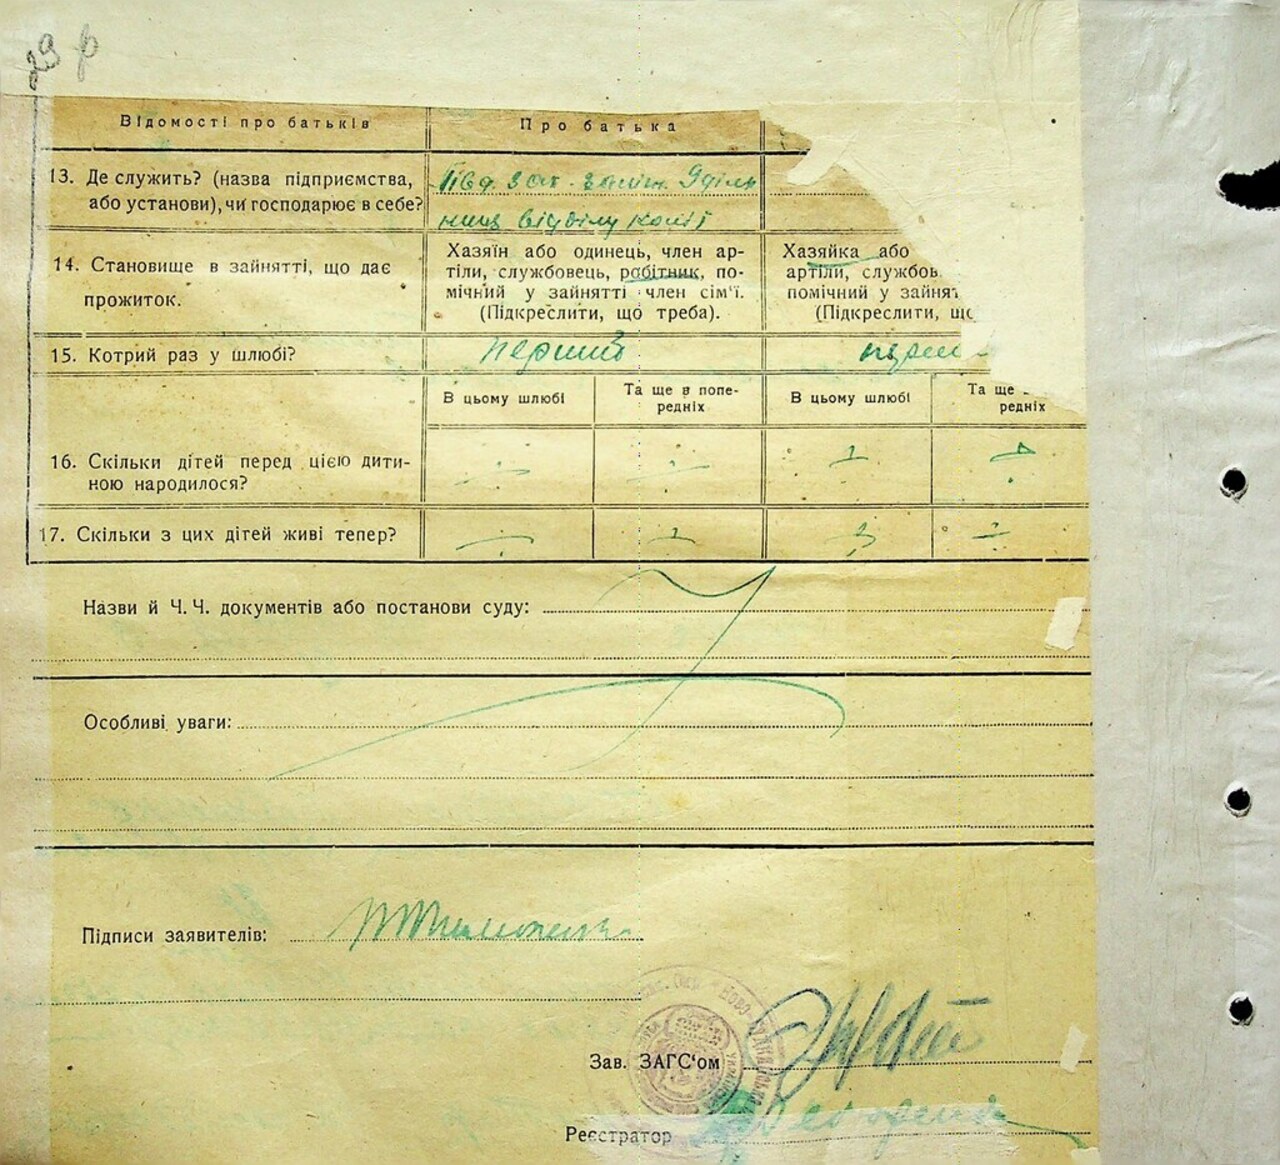 29 р
Відомості про батьків
Про батька
13. Де служить? (назва підприємства,
або установи), чи господарює в себе?
Півд. Зах. заліз.
відділу колії
14. Становище в зайнятті, що дає
прожиток.
Хазяїн або одинець, член ар-
тілі, службовець, робітник, по-
мічний у зайнятті член сім'ї.
(Підкреслити, що треба).
Хазяйка або
артілі, службов
помічний у зайнят
(Підкреслити, що
15. Котрий раз у шлюбі?
перший
перш
В цьому шлюбі
Та ще в попе-
редніх
В цьому шлюбі
Та ще
редніх
16. Скільки дітей перед цією дити-
ною народилося?
17. Скільки з цих дітей живі тепер?
Назви й Ч. Ч. документів або постанови суду:
Особливі уваги:
Підписи заявителів:
Зав. ЗАГС'ом
Реєстратор